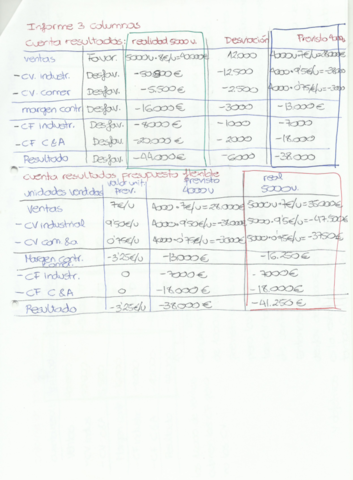 Informe 3 columnas
cuenta resultados: realidad 5000 u. Desviación Previsto 4000u
ventas Favor. 12000
- CV industr. Desfav. -12.500
- CV comer Desfav. -5.500 € -2500
margen contr Desfav. -16000 € -3000 -13000 €
- CF industr. Desfav. -8000 € -1000 -7000
- CF C&A Desfav. -20000 € -2000 -18.000
Resultado Desfav. -44.000 € -6000 -38.000
cuenta resultados presupuesto flexible
unidades vendidas valor unit Prev. Previsto 4000 u real 5000 u.
Ventas 7€/u 4000·7€/u=28.000€ 5000u·7€/u=35000€
- CV industrial 9'50€/u 4000·9'50€/u=-38.000€ 5000·9'5€/u=-47.500€
- CV com &a 0'75€/u 4000·0'75€/u=-3000€ 5000·0'75€/u=-3750€
Margen contr. -3'25€/u -13000 € -16.250 €
- CF industr. 0 -7000 € -7000 €
- CF C&A 0 -18.000 € -18.000 €
Resultado -3'25€/u -38.000 € -41.250 €